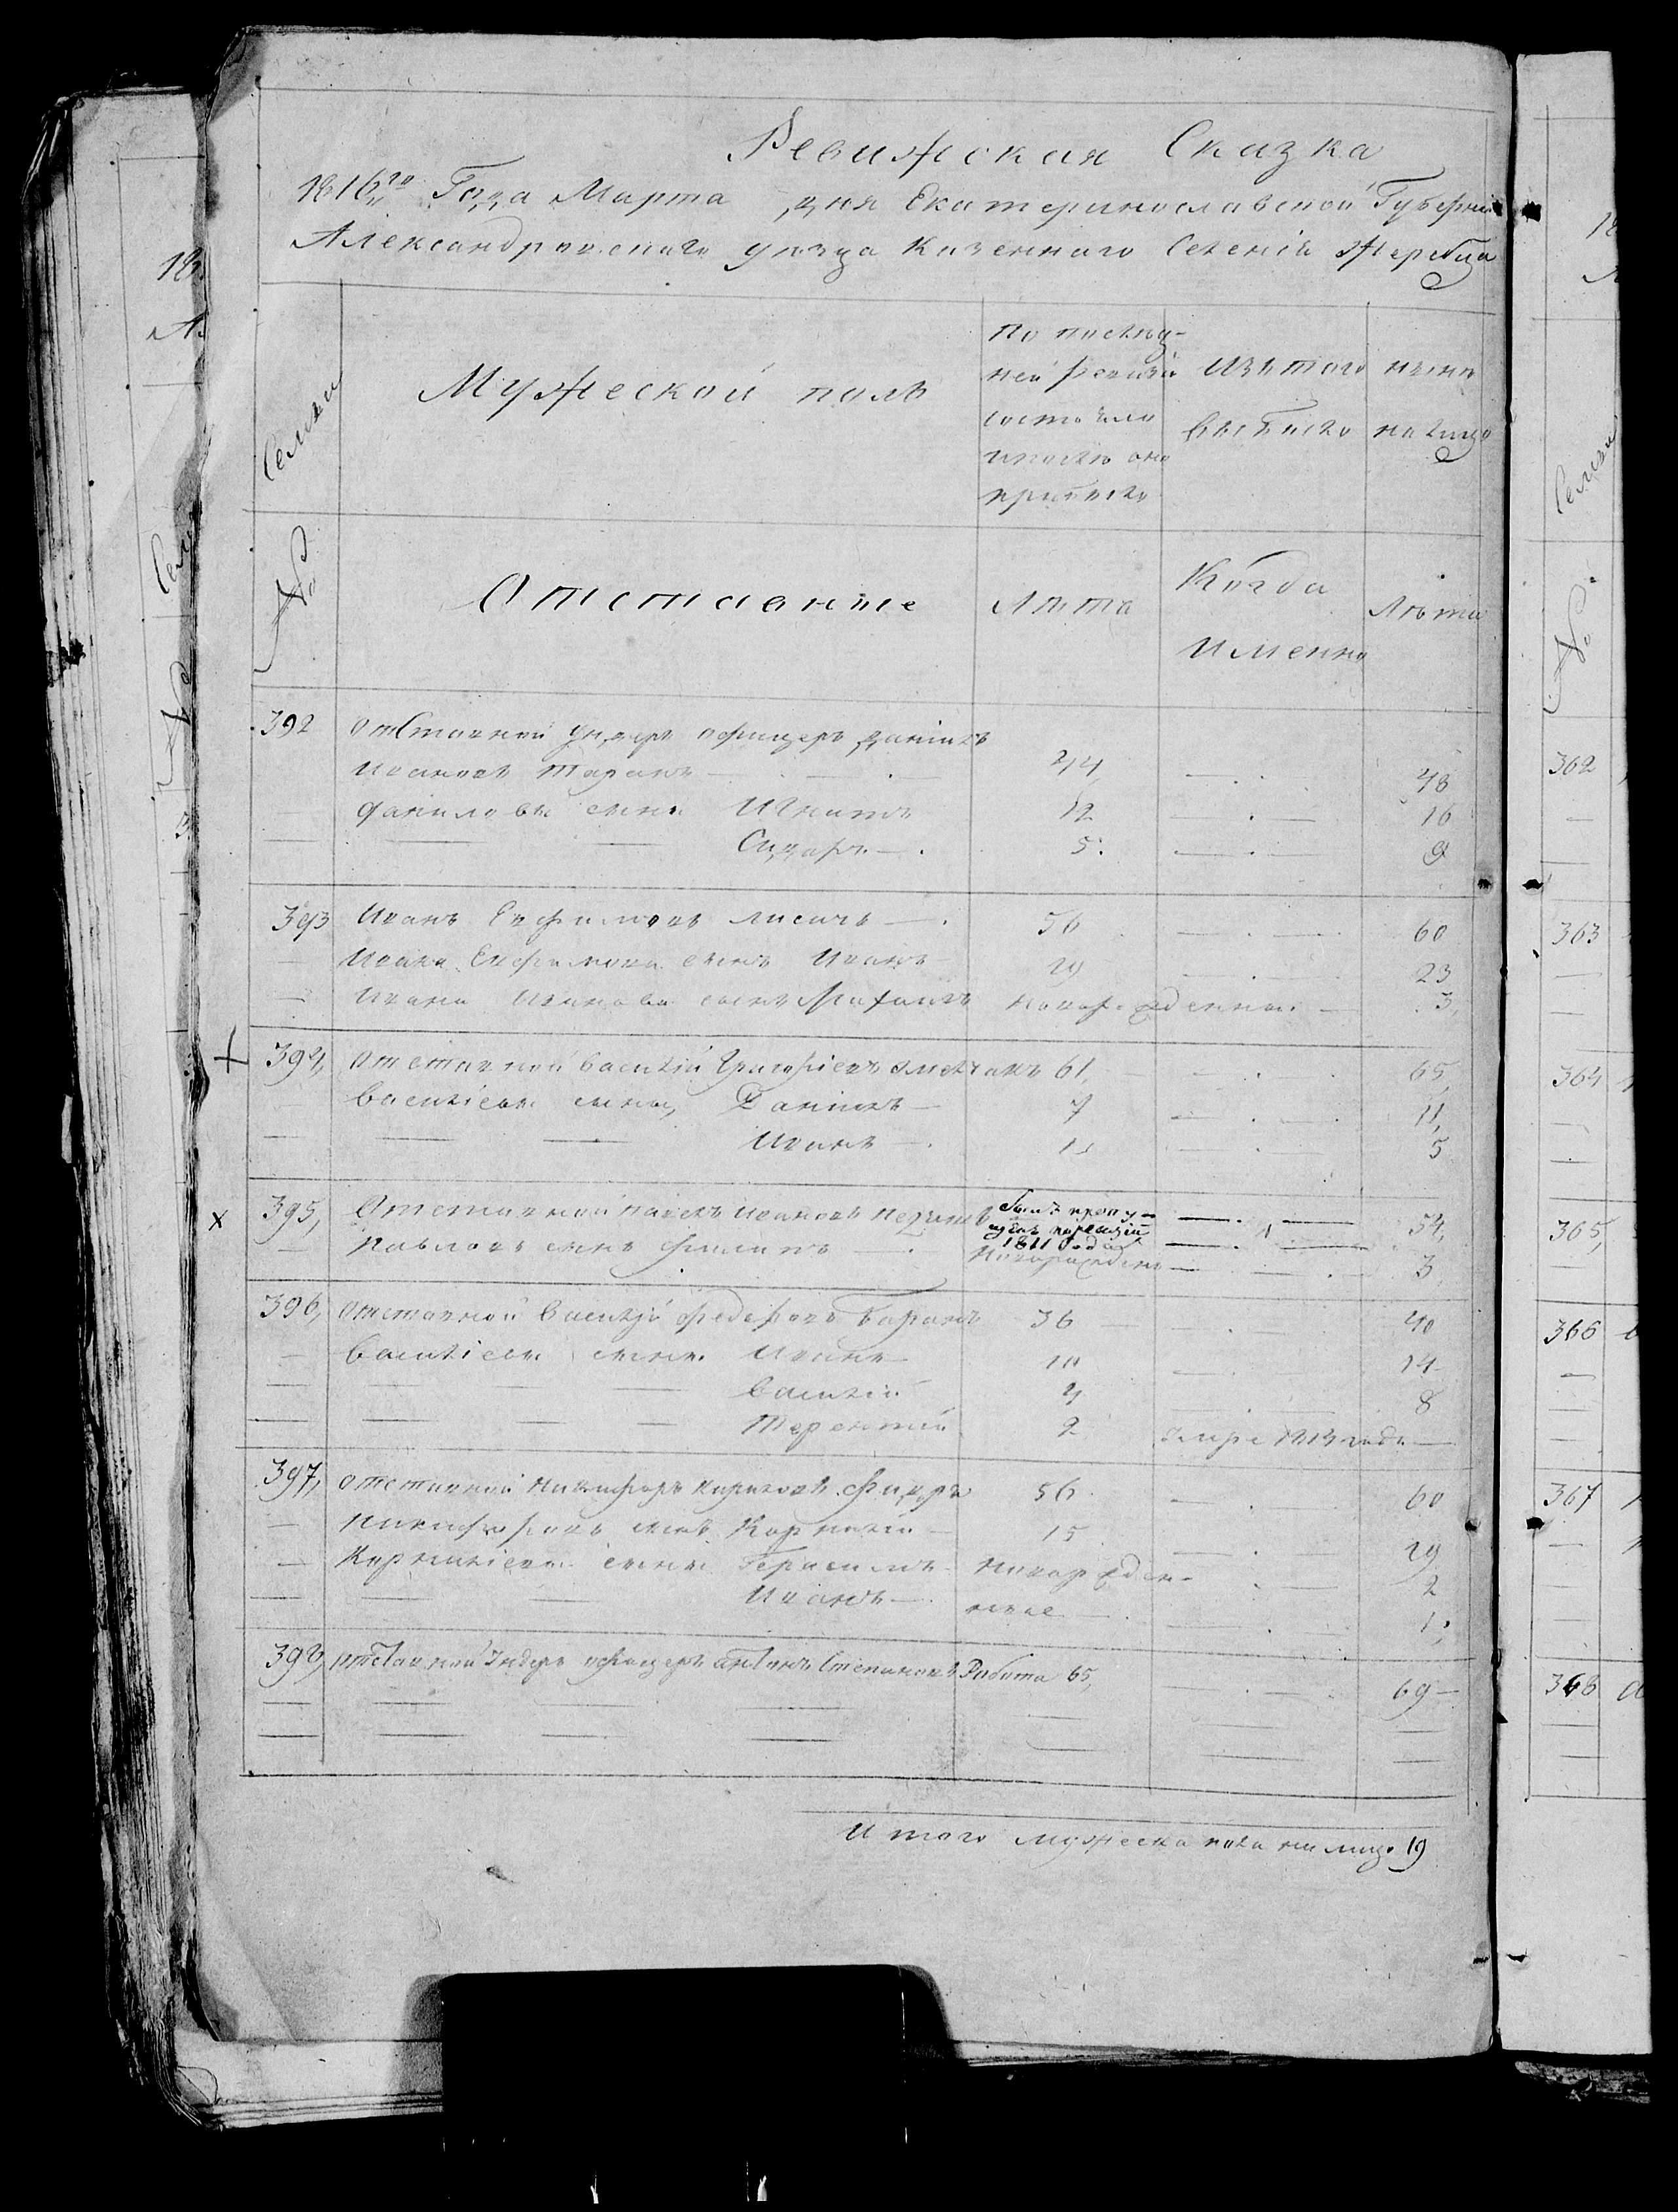 Ревижская Сказка
1816го Года Марта дня Екатеринославской Губерніи
Александровскаго уезда Казеннаго Селенія Жеребца
Семьи
Мужеской полъ
По послед-
ней ревизіи
состояло
и после оно
прибыло
Изъ того
выбыло
ныне
на лицо
№
Отставные
Лета
Когда
Имянно
Лета
392 отставной ундеръ офицеръ Данилъ
Ивановъ Таранъ 44 48
Даниловы сыны Игнатъ 12 16
Сидоръ 5 9
393 Иванъ Евфимовъ Лисичъ 56 60
Ивана Евфимова сынъ Иванъ 19 23
Ивана Иванова сынъ Михаилъ новорожденный 3
394 отставной Василій Григорієвъ 61 65
Василіевы сыны, Данилъ 7 11
Иванъ 1 5
395, Отставной Павелъ Ивановъ 54
Былъ пропу-
щен по ревизіи
1811 года
Павловъ сынъ Филипъ Новорожденъ 3
396, отставной Василій Федоровъ Баранъ 36 40
Василіевы сыны Иванъ 10 14
Василій 4 8
Терентій 2 умре 1813 года
397, отставной Никифоръ Кириловъ 56 60
Никифоровъ сынъ Корнилій 15 19
Корниліевы сыны Герасимъ новорожден- 2
Иванъ ные 1
398, отставной Ундеръ офицеръ Антонъ Степановъ Робота 65, 69
Итого мужеска пола на лицо 19
362
363
364
365,
366
367
368